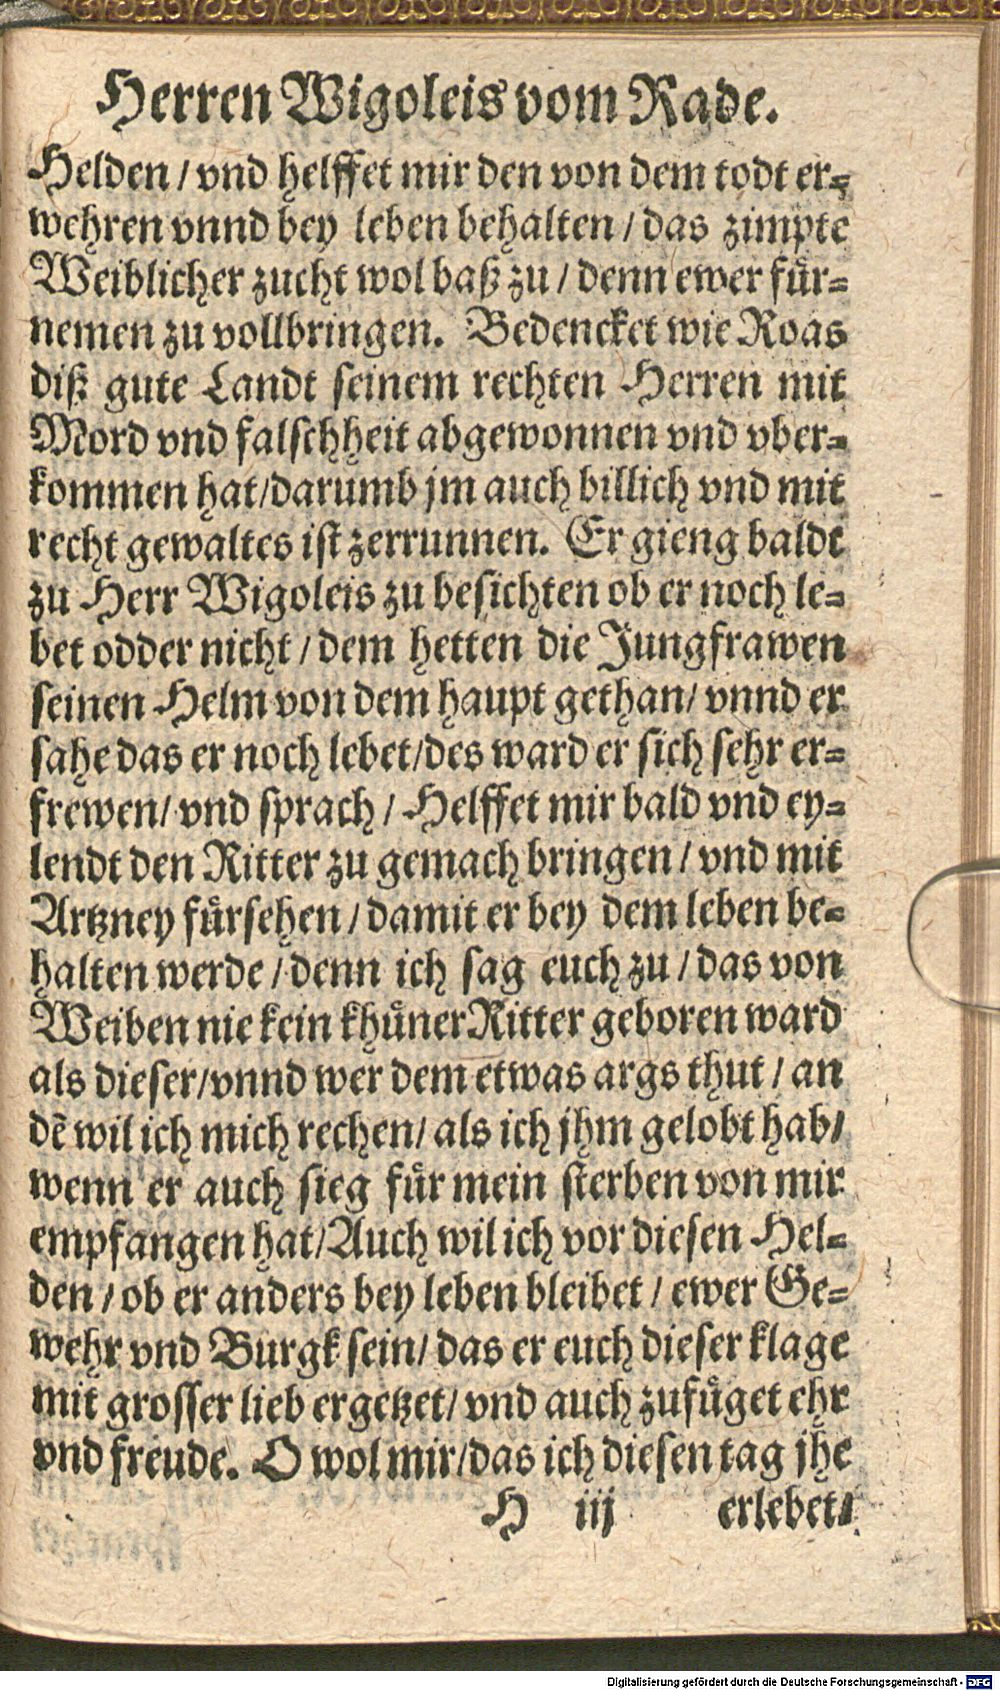 Herren Wigoleis vom Rade.
Helden / vnd helffet mir den von dem todt er-
wehren vnnd bey leben behalten / das zimpte
Weiblicher zucht wol baß zu / denn ewer fuͤr-
nemen zu vollbringen. Bedencket wie Roas
diß gute Landt seinem rechten Herren mit
Mord vnd falschheit abgewonnen vnd vber-
kommen hat/darumb jm auch billich vnd mit
recht gewaltes ist zerrunnen. Er gieng baldt
zu Herr Wigoleis zu besichten ob er noch le-
bet odder nicht / dem hetten die Jungfrawen
seinen Helm von dem haupt gethan/ vnnd er
sahe das er noch lebet/des ward er sich sehr er-
frewen/ vnd sprach / Helffet mir bald vnd ey-
lendt den Ritter zu gemach bringen / vnd mit
Artzney fuͤrsehen / damit er bey dem leben be-
halten werde / denn ich sag euch zu / das von
Weiben nie kein khuͤner Ritter geboren ward
als dieser/vnnd wer dem etwas args thut / an
dẽ wil ich mich rechen/ als ich jhm gelobt hab/
wenn er auch sieg fuͤr mein sterben von mir
empfangen hat/Auch wil ich vor diesen Hel-
den / ob er anders bey leben bleibet / ewer Ge-
wehr vnd Burgk sein/ das er euch dieser klage
mit grosser lieb ergetzet/ vnd auch zufuͤget ehr
vnd freude. O wol mir/das ich diesen tag jhe
H iij erlebet/
Digitalisierung gefördert durch die Deutsche Forschungsgemeinschaft - DFG